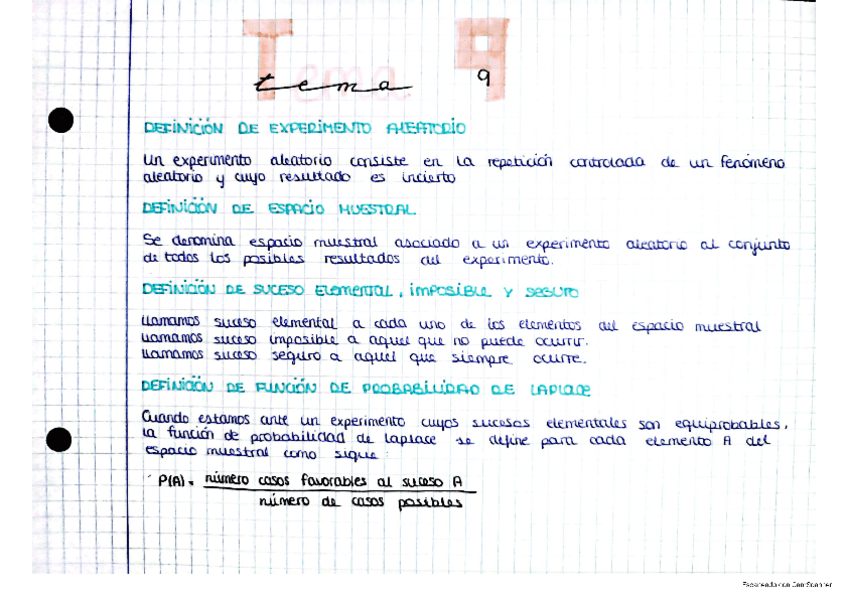 Tema 9
tema 9
DEFINICIÓN DE EXPERIMENTO ALEATORIO
Un experimento aleatorio consiste en la repetición controlada de un fenómeno
aleatorio y cuyo resultado es incierto
DEFINICIÓN DE ESPACIO MUESTRAL
Se denomina espacio muestral asociado a un experimento aleatorio al conjunto
de todos los posibles resultados del experimento.
DEFINICIÓN DE SUCESO ELEMENTAL, IMPOSIBLE Y SEGURO
Llamamos suceso elemental a cada uno de los elementos del espacio muestral
Llamamos suceso imposible a aquel que no puede ocurrir.
Llamamos suceso seguro a aquel que siempre ocurre.
DEFINICIÓN DE FUNCIÓN DE PROBABILIDAD DE LAPLACE
Cuando estamos ante un experimento cuyos sucesos elementales son equiprobables,
la función de probabilidad de Laplace se define para cada elemento A del
espacio muestral como sigue:
P(A) = número casos favorables al suceso A
número de casos posibles
Escaneado con CamScanner